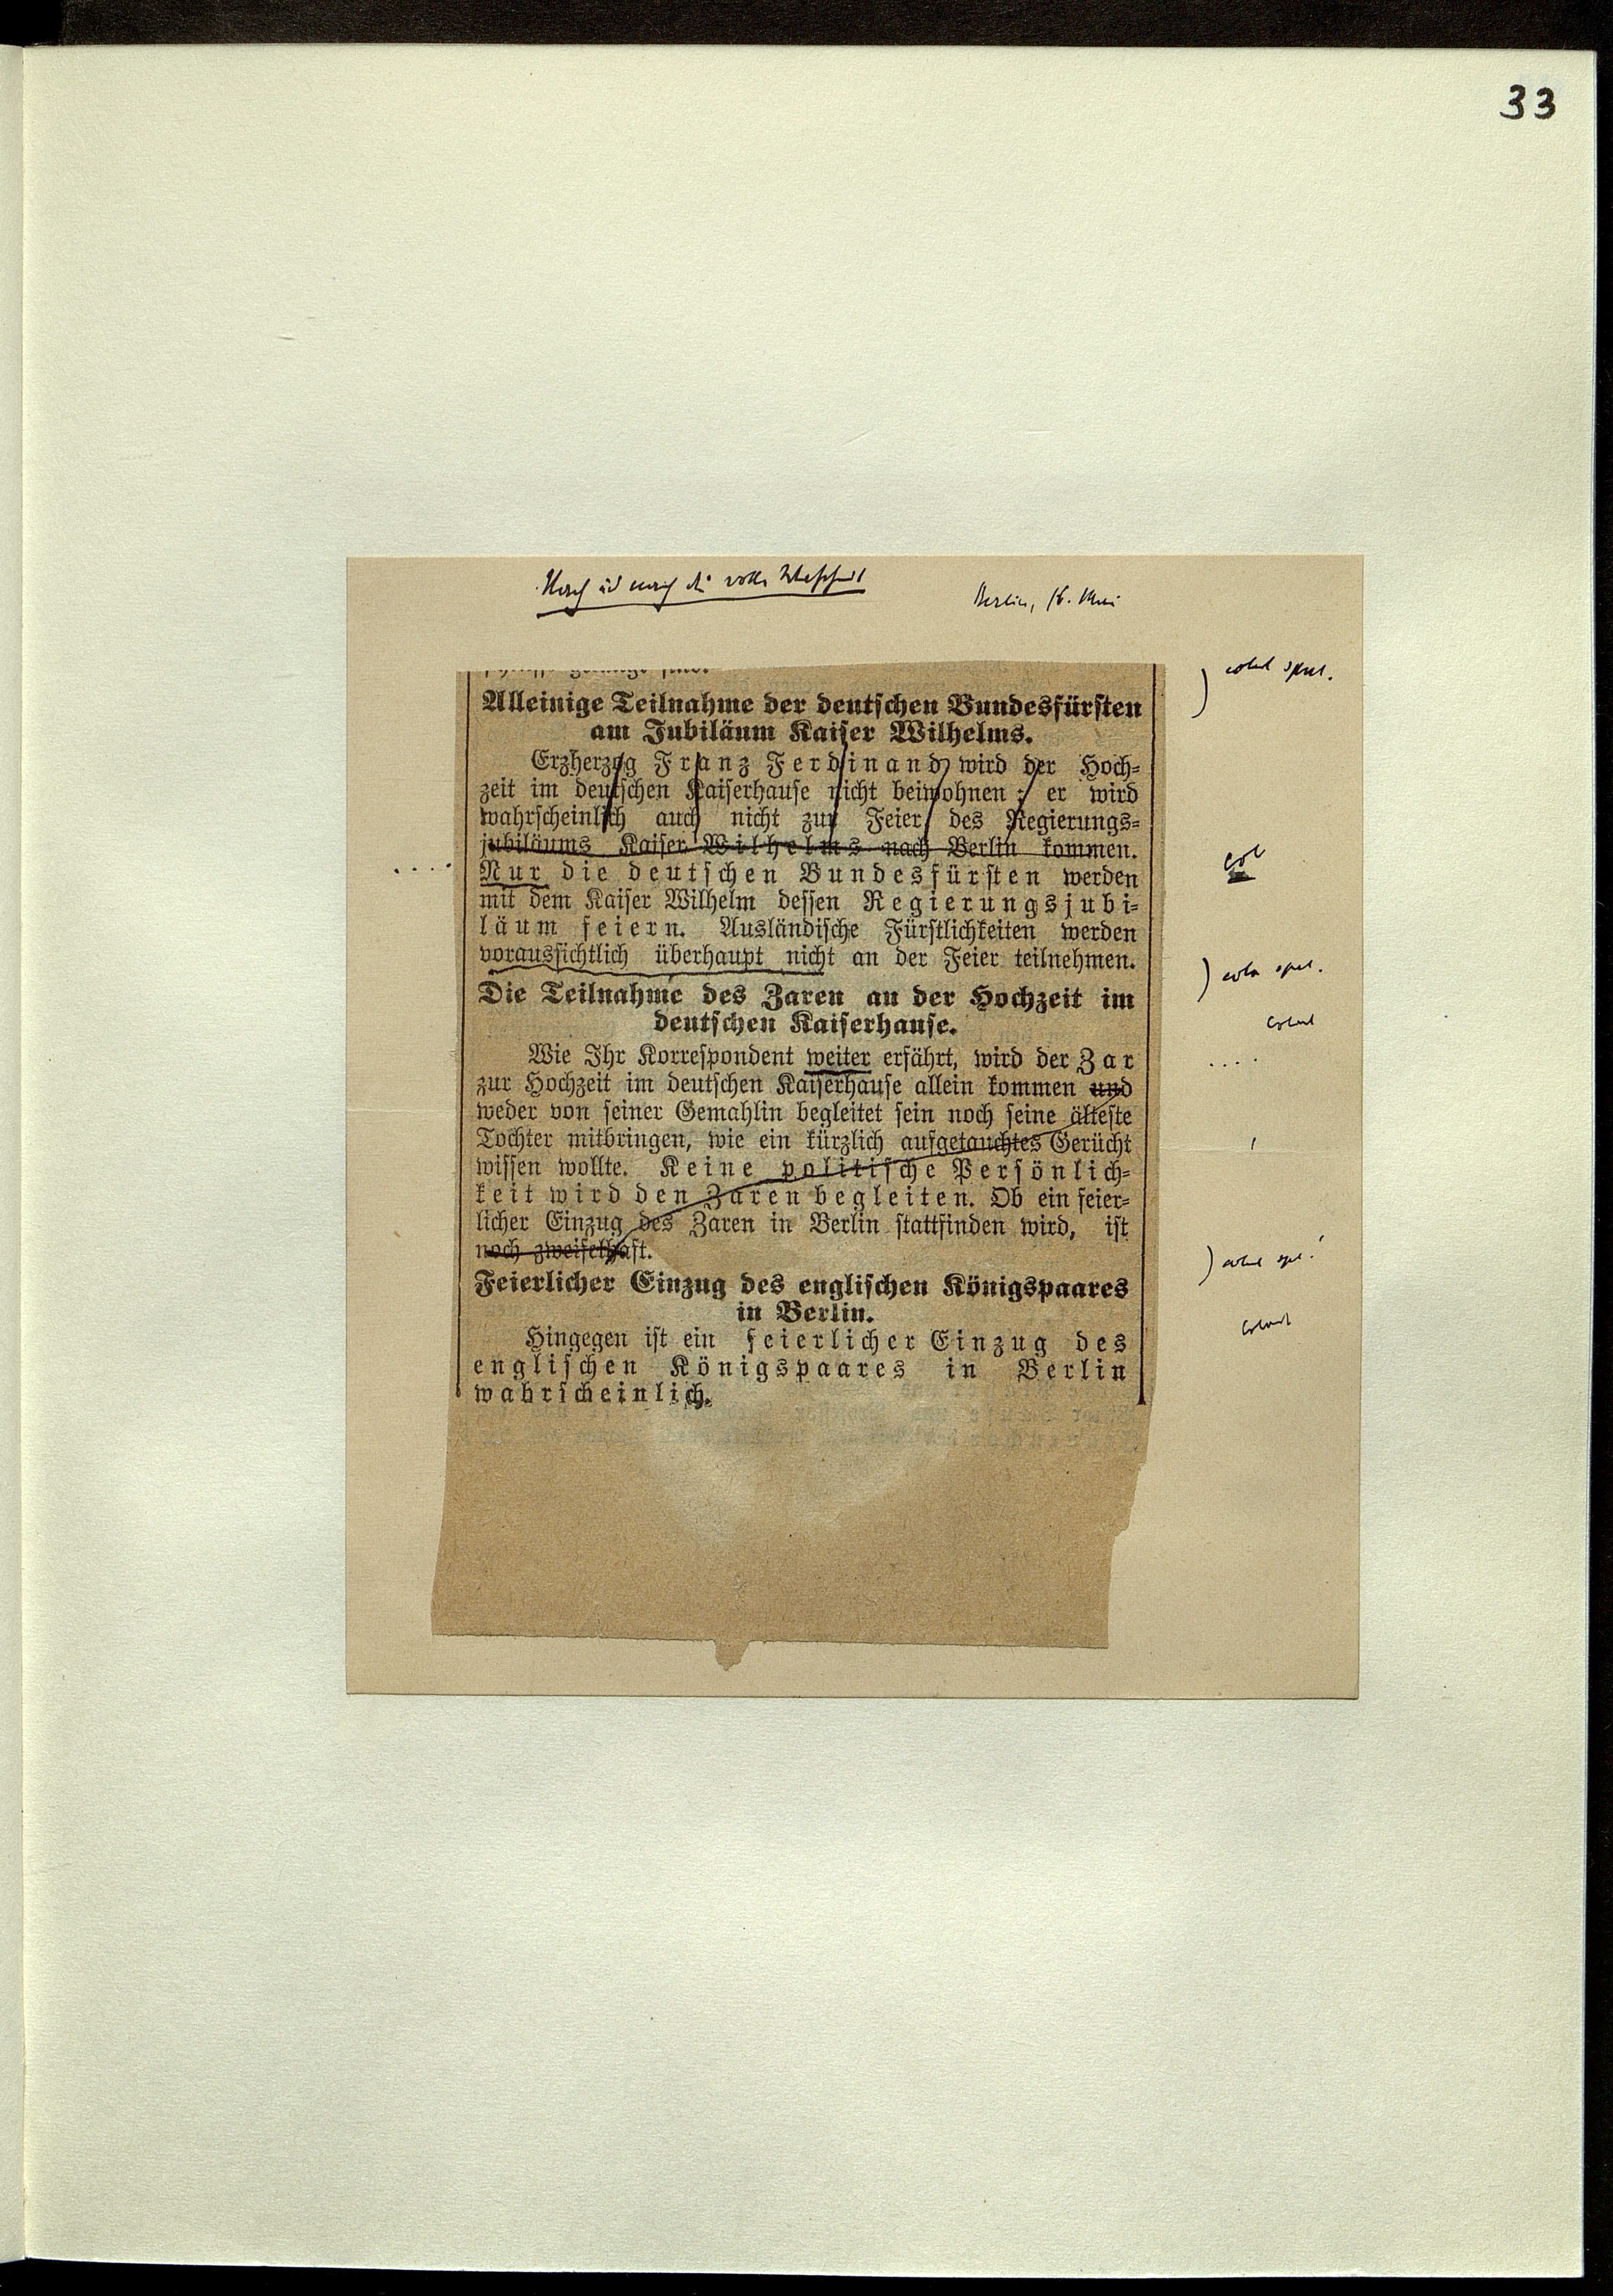 33
Nach und nach die volle Wahrheit
Berlin, 16. Mai
Alleinige Teilnahme der deutschen Bundesfürsten
am Jubiläum Kaiser Wilhelms.
Erzherzog Franz Ferdinand wird der Hoch-
zeit im deutschen Kaiserhause nicht beiwohnen; er wird
wahrscheinlich auch nicht zur Feier des Regierungs-
jubiläums Kaiser Wilhelms nach Berlin kommen.
Nur die deutschen Bundesfürsten werden
mit dem Kaiser Wilhelm dessen Regierungsjubi-
läum feiern. Ausländische Fürstlichkeiten werden
voraussichtlich überhaupt nicht an der Feier teilnehmen.
Die Teilnahme des Zaren an der Hochzeit im
deutschen Kaiserhause.
Wie Ihr Korrespondent weiter erfährt, wird der Zar
zur Hochzeit im deutschen Kaiserhause allein kommen und
weder von seiner Gemahlin begleitet sein noch seine älteste
Tochter mitbringen, wie ein kürzlich aufgetauchtes Gerücht
wissen wollte. Keine politische Persönlich-
keit wird den Zaren begleiten. Ob ein feier-
licher Einzug des Zaren in Berlin stattfinden wird, ist
noch zweifelhaft.
Feierlicher Einzug des englischen Königspaares
in Berlin.
Hingegen ist ein feierlicher Einzug des
englischen Königspaares in Berlin
wahrscheinlich.